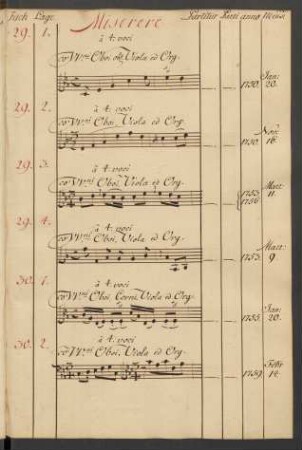 Fach. Lage. Miserere Partitur Parti anno Mens:
29. 1.
à 4: voci
co VVni Oboi ob: Viola ed Org.
1750. Jan: 20.
29. 2.
à 4: voci
co VVni Oboi, Viola ed Org.
1750. Nov: 16.
29. 3.
à 4: voci
co VVni Oboi, Viola ed Org.
1753. 1756. Mart: 11.
29. 4.
à 4: voci
co VVni Oboi, Viola ed Org.
1753. Mart: 9.
30. 1.
à 4: voci
co VVni Oboi, Corni, Viola ed Org.
1755. Jan: 20.
30. 2.
à 4: voci
co VVni Oboi, Viola ed Org.
1759. Febr: 14.